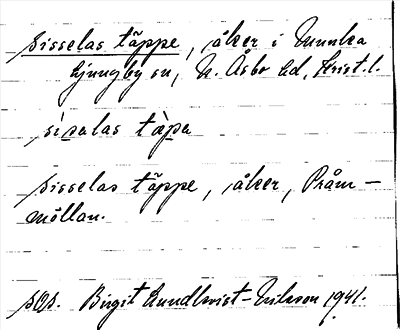 Sisselas täppe, åker i Munka
Ljungby sn, N. Åsbo hd, Krist. l.
sìsalas tàpa
Sisselas täppe, åker, Pråm-
möllan.
Birgit Lundkvist-Nilsson 1941.